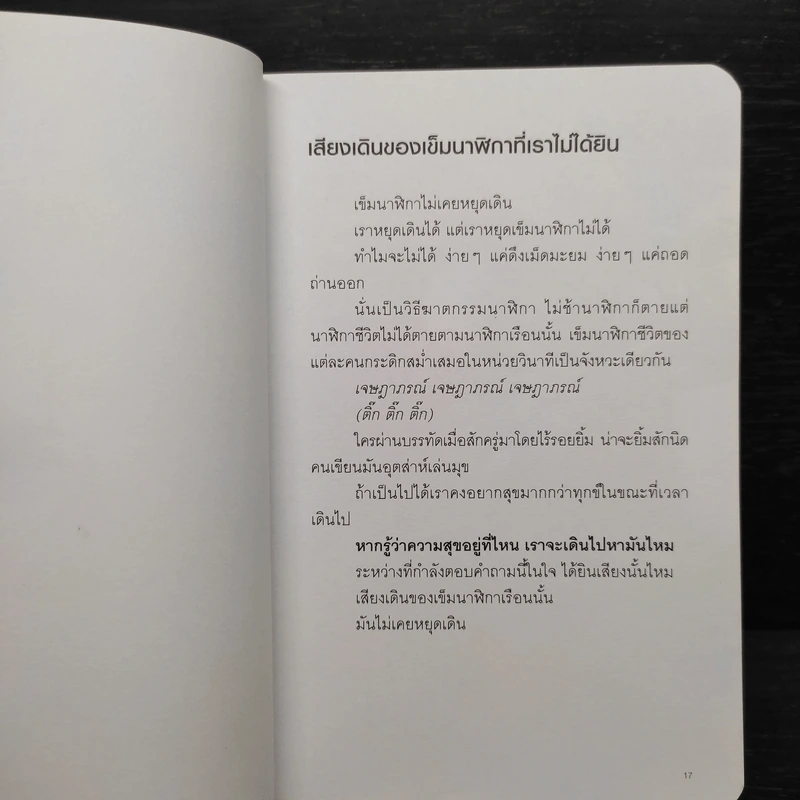 เสียงเดินของเข็มนาฬิกาที่เราไม่ได้ยิน
เข็มนาฬิกาไม่เคยหยุดเดิน
เราหยุดเดินได้ แต่เราหยุดเข็มนาฬิกาไม่ได้
ทำไมจะไม่ได้ ง่ายๆ แค่ดึงเม็ดมะยม ง่ายๆ แค่ถอด
ถ่านออก
นั่นเป็นวิธีฆาตกรรมนาฬิกา ไม่ช้านาฬิกาก็ตายแต่
นาฬิกาชีวิตไม่ได้ตายตามนาฬิกาเรือนนั้น เข็มนาฬิกาชีวิตของ
แต่ละคนกระดิกสม่ำเสมอในหน่วยวินาทีเป็นจังหวะเดียวกัน
เจษฎาภรณ์ เจษฎาภรณ์ เจษฎาภรณ์
(ติ๊ก ติ๊ก ติ๊ก)
ใครผ่านบรรทัดเมื่อสักครู่มาโดยไร้รอยยิ้ม น่าจะยิ้มสักนิด
คนเขียนมันอุตส่าห์เล่นมุข
ถ้าเป็นไปได้เราคงอยากสุขมากกว่าทุกข์ในขณะที่เวลา
เดินไป
หากรู้ว่าความสุขอยู่ที่ไหน เราจะเดินไปหามันไหม
ระหว่างที่กำลังตอบคำถามนี้ในใจ ได้ยินเสียงนั้นไหม
เสียงเดินของเข็มนาฬิกาเรือนนั้น
มันไม่เคยหยุดเดิน
17